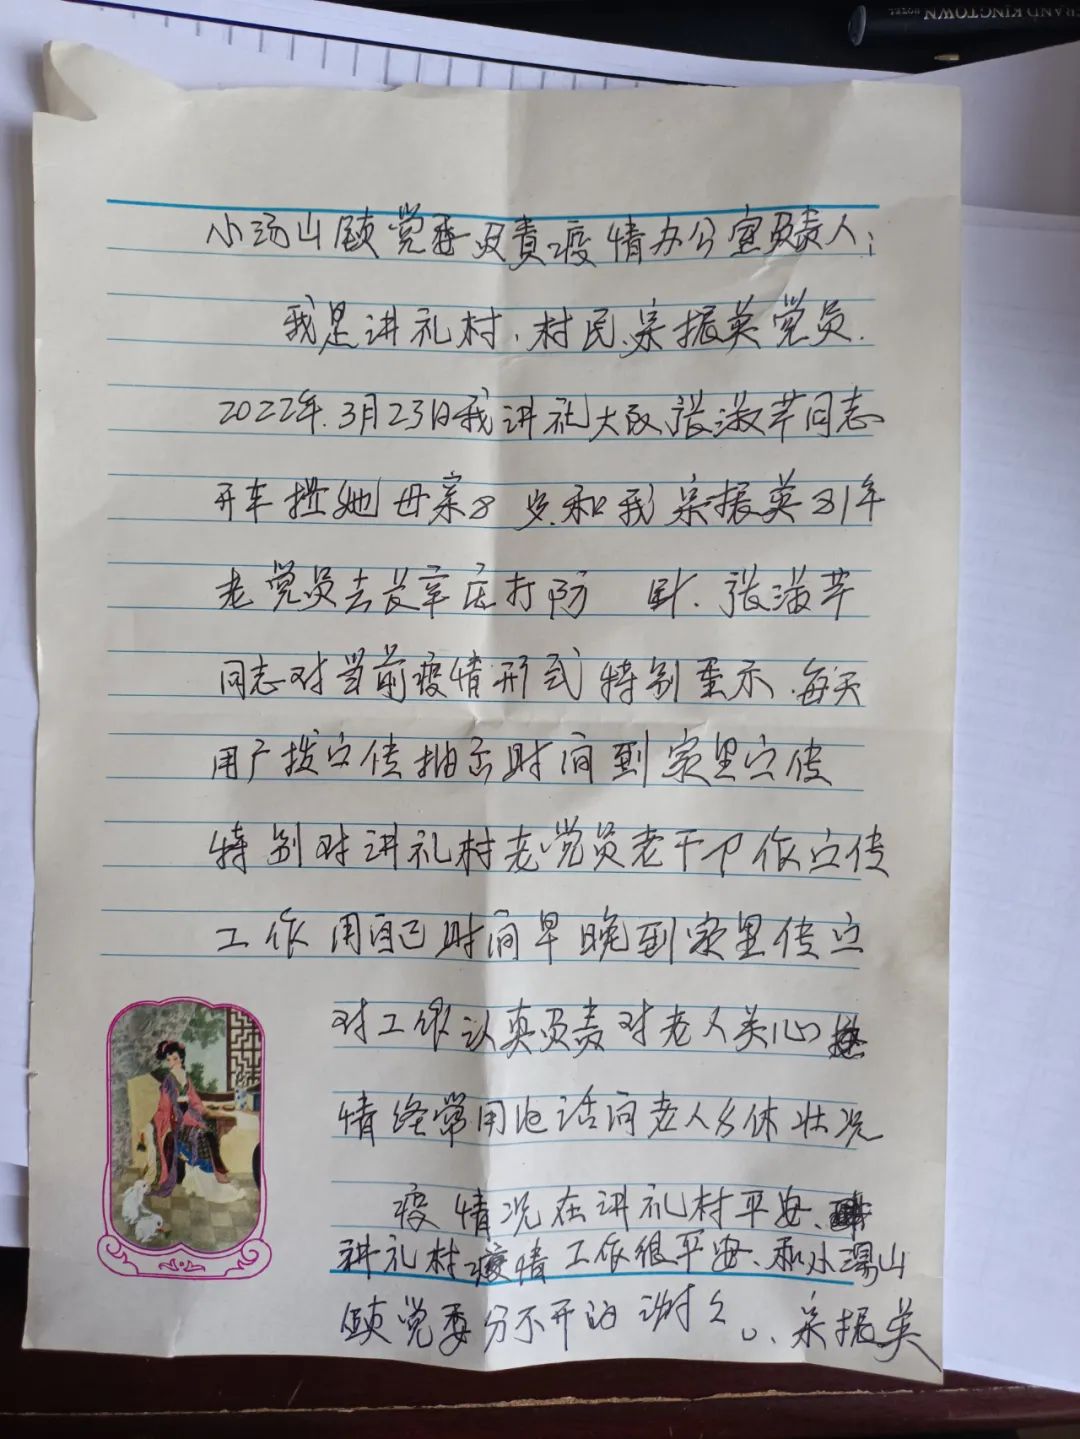 GRAND KINGTOWN
HOTEL
小汤山镇党委负责疫情办公室负责人:
我是讲礼村.村民.宗振英党员.
2022年.3月23日我讲礼大队张淑芹同志
开车拉她母亲8 岁和我宗振英81年
老党员去长辛庄打防 针.张淑芹
同志对当前疫情形式特别重示.每天
用广拨宣传抽出时间到家里宣传
特别对讲礼村老党员老干卩作宣传
工作用自己时间早晚到家里传宣
对工作认真负责对老人关心
情经常用电话问老人身体状况
疫情况在讲礼村平安、
讲礼村疫情工作很平安、和小汤山
镇党委分不开的谢谢。、宗振英